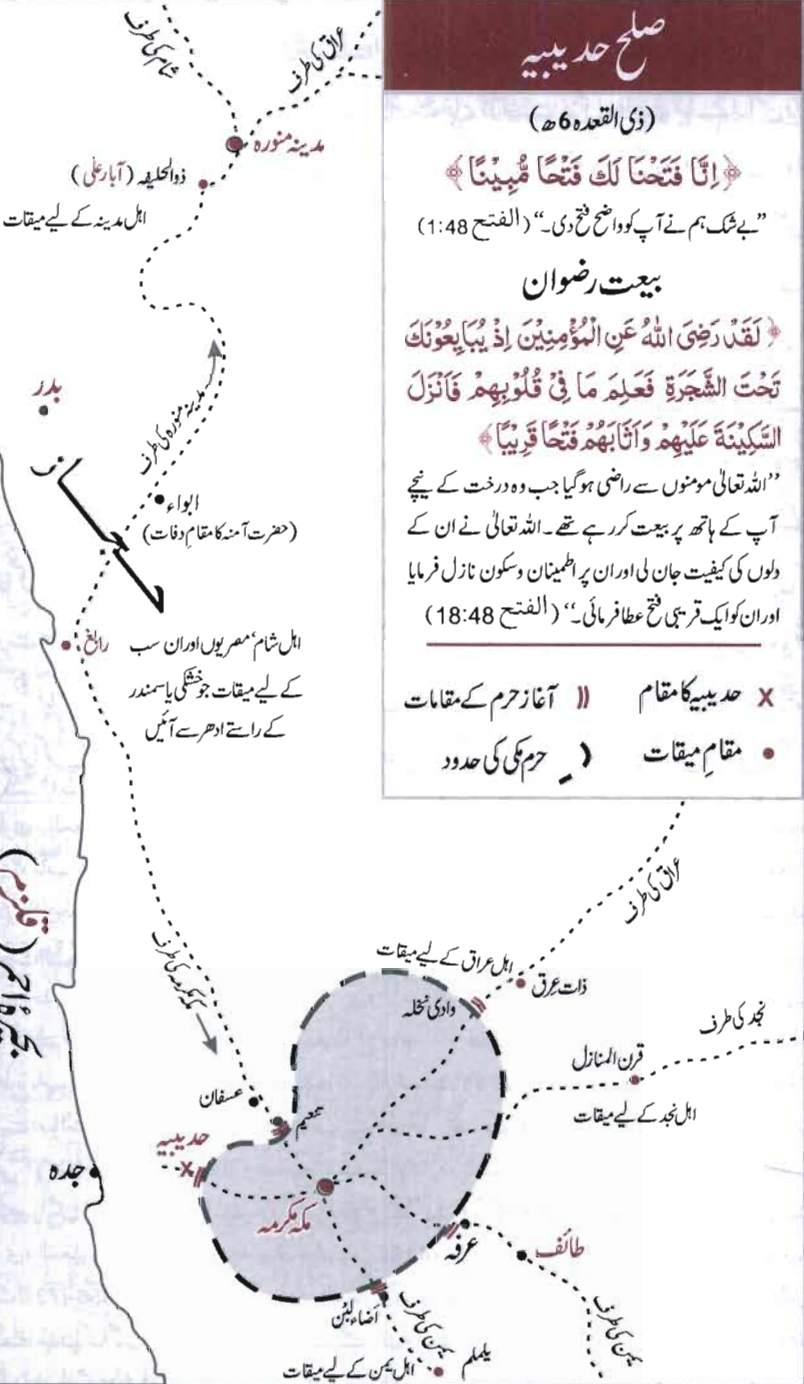 صلح حدیبیہ
(ذی القعدہ 6ھ)
﴿اِنَّا فَتَحْنَا لَكَ فَتْحًا مُّبِيْنًا﴾
”بے شک ہم نے آپ کو واضح فتح دی۔“ (الفتح 1:48)
بیعت رضوان
﴿لَقَدْ رَضِيَ اللّٰهُ عَنِ الْمُؤْمِنِيْنَ اِذْ يُبَايِعُوْنَكَ
تَحْتَ الشَّجَرَةِ فَعَلِمَ مَا فِيْ قُلُوْبِهِمْ فَاَنْزَلَ
السَّكِيْنَةَ عَلَيْهِمْ وَاَثَابَهُمْ فَتْحًا قَرِيْبًا﴾
”اللہ تعالیٰ مومنوں سے راضی ہو گیا جب وہ درخت کے نیچے
آپ کے ہاتھ پر بیعت کر رہے تھے۔ اللہ تعالیٰ نے ان کے
دلوں کی کیفیت جان لی اور ان پر اطمینان و سکون نازل فرمایا
اور ان کو ایک قریبی فتح عطا فرمائی۔“ (الفتح 18:48)
x حدیبیہ کا مقام
آغاز حرم کے مقامات
• مقامِ میقات
حرم مکی کی حدود
شام کی طرف
عراق کی طرف
مدینہ منورہ
ذوالحلیفہ (آبار علی)
اہل مدینہ کے لیے میقات
بدر
مدینہ منورہ کی طرف
ابواء
(حضرت آمنہ کا مقامِ وفات)
رابغ
اہل شام‘ مصریوں اور ان سب
کے لیے میقات جو خشکی یا سمندر
کے راستے ادھر سے آئیں
بحیرۂ احمر (قلزم)
مکہ مکرمہ کی طرف
عراق کی طرف
اہل عراق کے لیے میقات
ذات عرق
وادی نخلہ
نجد کی طرف
قرن المنازل
اہل نجد کے لیے میقات
عسفان
تنعیم
حدیبیہ
x
جدہ
مکہ مکرمہ
عرفہ
طائف
اضاءۃ لبن
یمن کی طرف
یمن کی طرف
یلملم
اہل یمن کے لیے میقات